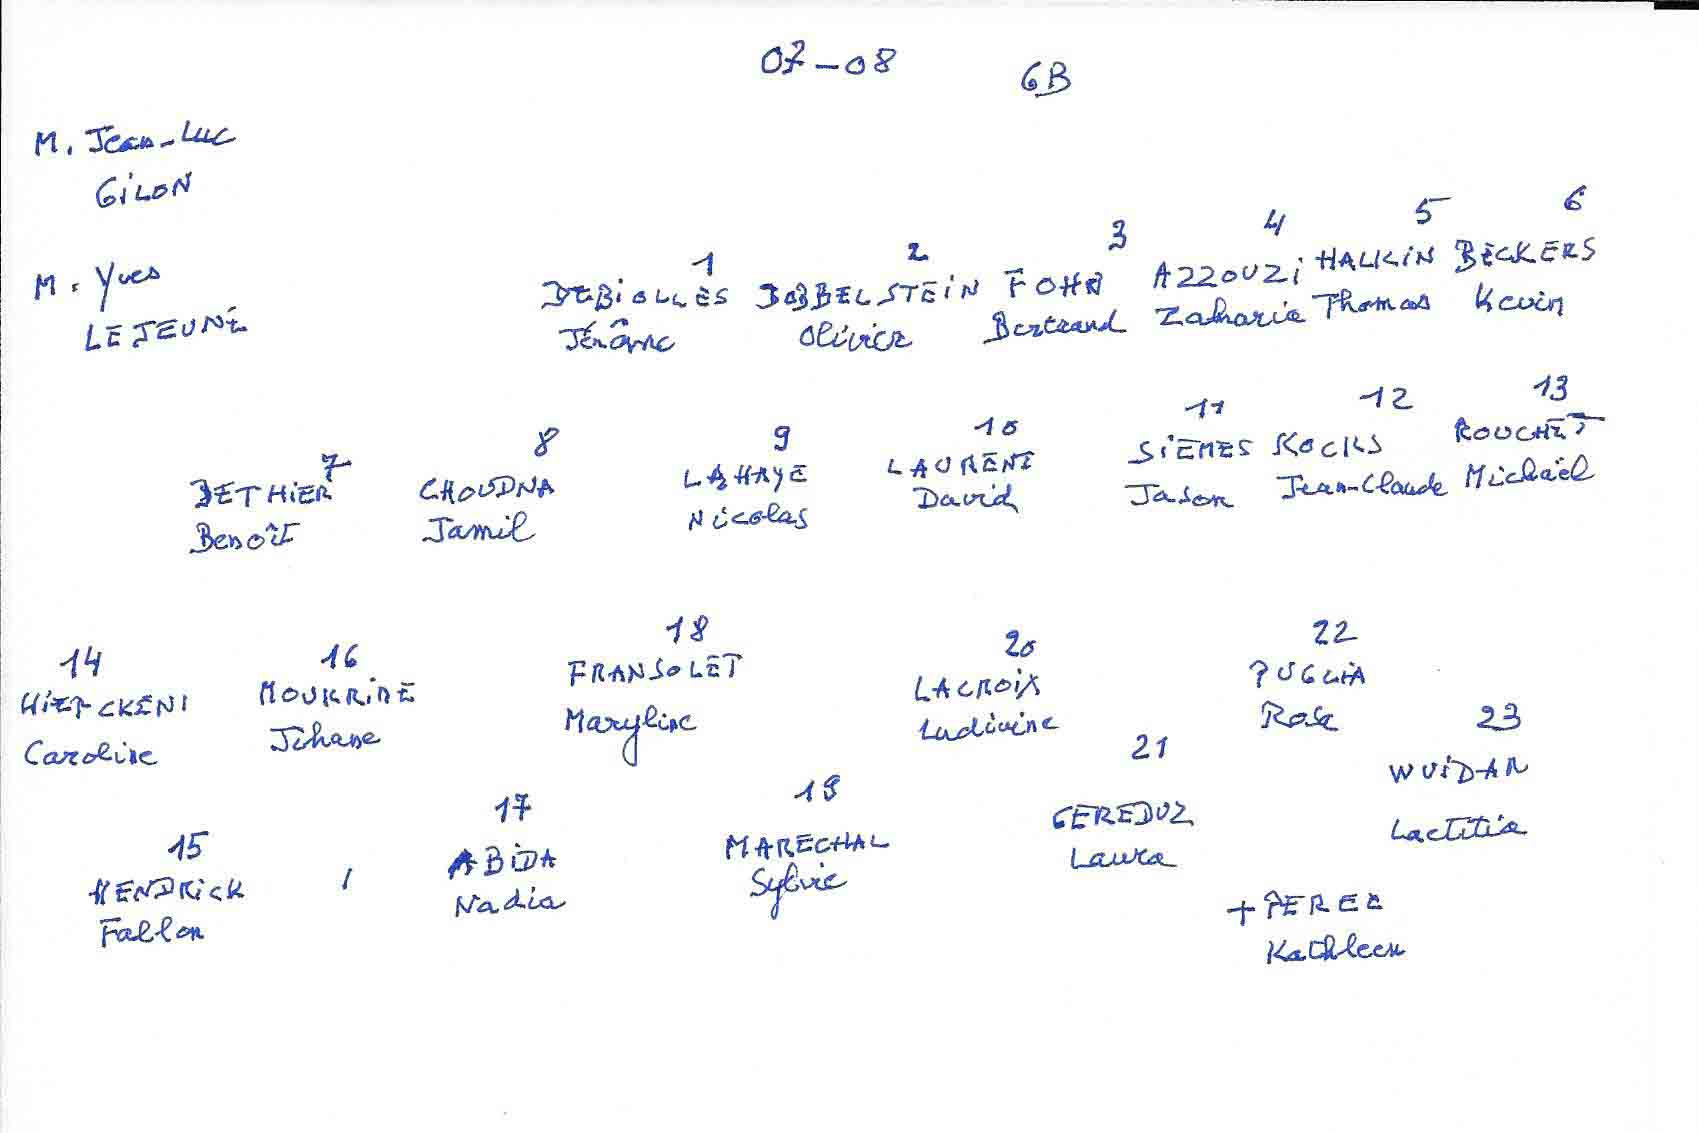 07-08 6B
M. Jean-Luc
GILON
M. Yves
LEJEUNE
1 2 3 4 5 6
DEBIOLLES DOBBELSTEIN FOHN AZZOUZI HALKIN BECKERS
Jérôme Olivier Bertrand Zaharia Thomas Kevin
7 8 9 10 11 12 13
BETHIER CHOUDNA LAHAYE LAURENT SIEMES KOCKS ROUCHET
Benoît Jamil Nicolas David Jason Jean-Claude Michaël
14 16 18 20 22
MOUKRIME FRANSOLET LACROIX PUGLIA
Caroline Jihane Maryline Ludivine Rosa
15 17 19 21 23
HENDRICK ABIDA MARECHAL GEREDUZ WUIDAR
Fallon Nadia Sylvie Laura Laetitia
+ PEREE
Kathleen